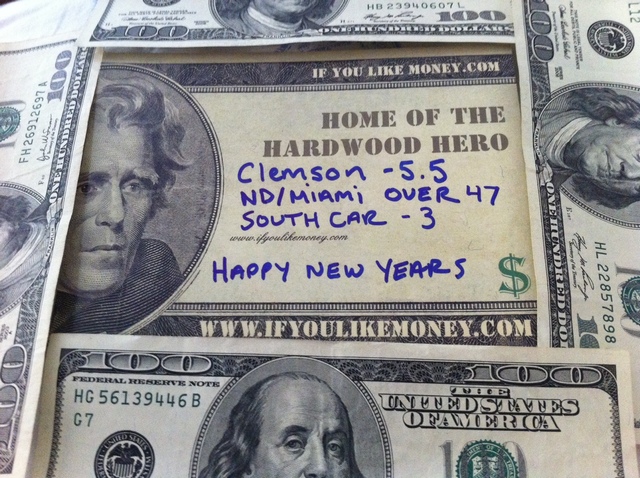 HB 23940607 L
100
100
ONE HUNDRED DOLLARS
FH 26912697 A
100
ONE HUNDRED DOLLARS
IF YOU LIKE MONEY.COM
HOME OF THE
HARDWOOD HERO
Clemson -5.5
ND/MIAMI OVER 47
SOUTH CAR -3
www.ifyoulikemoney.com
HAPPY NEW YEARS
$
WWW.IFYOULIKEMONEY.COM
100
HL 22857898
100
100
FEDERAL RESERVE NOTE
HG 56139446 B
G7
THE
UNITED STATES
OF AMERICA